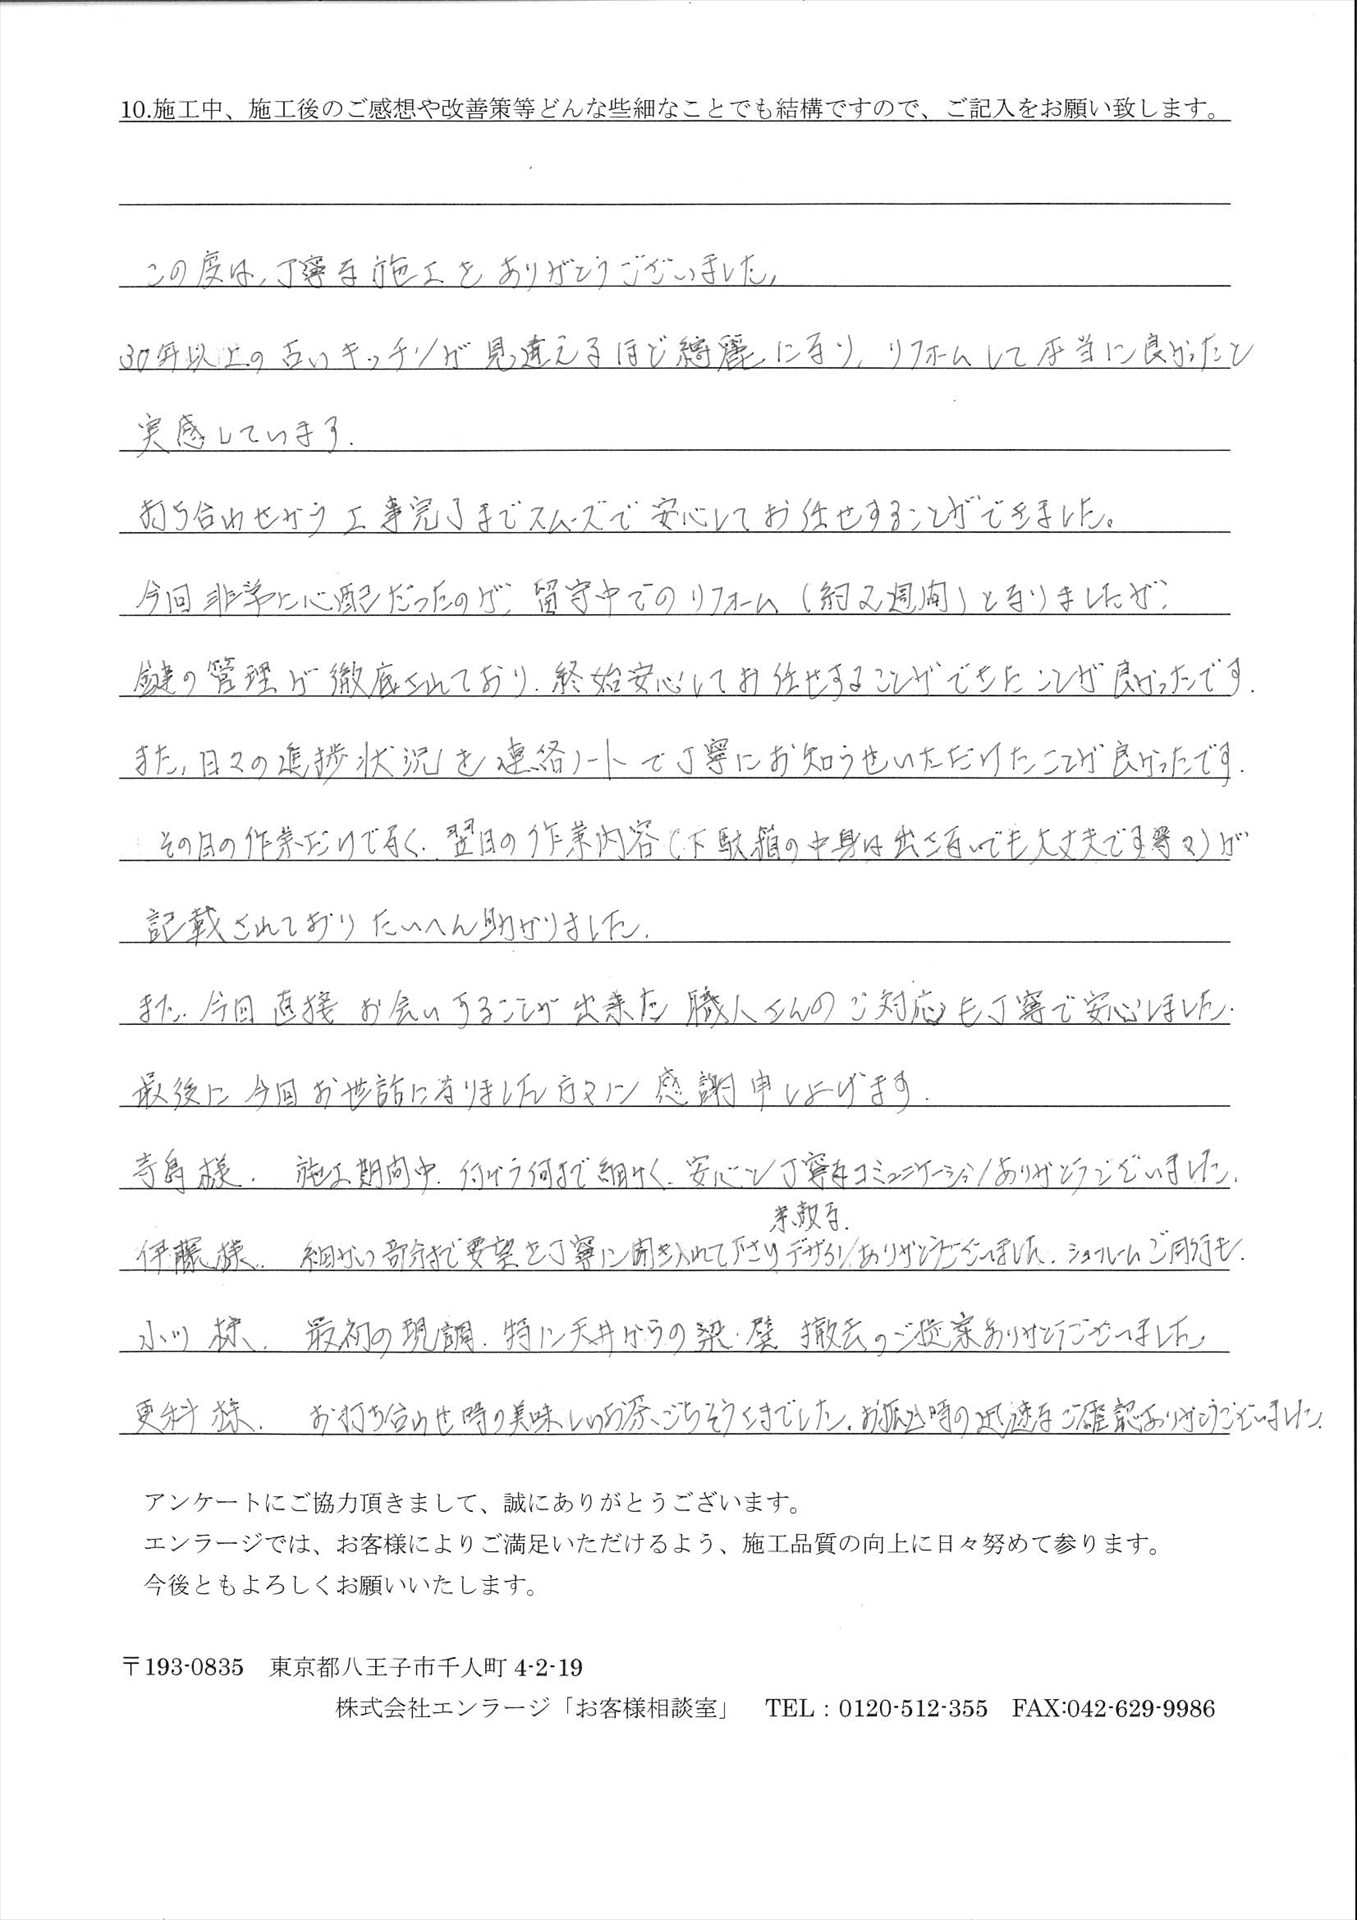 10.施工中、施工後のご感想や改善策等どんな些細なことでも結構ですので、ご記入をお願い致します。
この度は、丁寧な施工をありがとうございました。
30年以上の古いキッチンが見違えるほど綺麗になり、リフォームして本当に良かったと
実感しています。
打ち合わせから工事完了までスムーズで安心してお任せすることができました。
今回非常に心配だったのが、留守中でのリフォーム（約2週間）となりましたが、
鍵の管理が徹底されており、終始安心してお任せすることができたことが良かったです。
また、日々の進捗状況を連絡ノートで丁寧にお知らせいただけたことが良かったです。
その日の作業だけでなく、翌日の作業内容（下駄箱の中身は出さないでも大丈夫です等々）が
記載されておりたいへん助かりました。
また、今回直接お会いすることが出来た職人さんのご対応も丁寧で安心しました。
最後に今回お世話になりました方々に感謝申し上げます。
寺島様、施工期間中、何から何まで細かく、安心と丁寧なコミュニケーションありがとうございました。
素敵な
伊藤様、細かい部分まで要望を丁寧に聞き入れて下さりデザインありがとうございました。ショールームご同行も。
小川様、最初の現調、特に天井からの梁・壁撤去のご提案ありがとうございました。
更科様、お打ち合わせ時の美味しいお茶、ごちそうさまでした。お振込時の迅速なご確認ありがとうございました。
アンケートにご協力頂きまして、誠にありがとうございます。
エンラージでは、お客様によりご満足いただけるよう、施工品質の向上に日々努めて参ります。
今後ともよろしくお願いいたします。
〒193-0835　東京都八王子市千人町 4-2-19
株式会社エンラージ「お客様相談室」　TEL：0120-512-355　FAX:042-629-9986